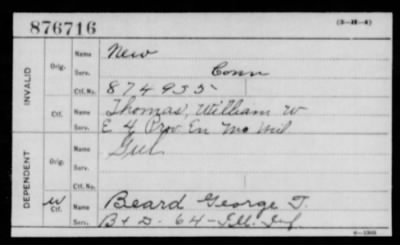 876716
(3-H-4)
INVALID
Orig.
Name New
Serv. Conn
Ctf. No. 874935
Ctf.
Name Thomas, William W
Serv. E 4 Prov En Mo Mil
DEPENDENT
Orig.
Name Gul
Serv.
Ctf. No.
W Ctf.
Name Beard George T.
Serv. B + D - 64 - Ill. Inf